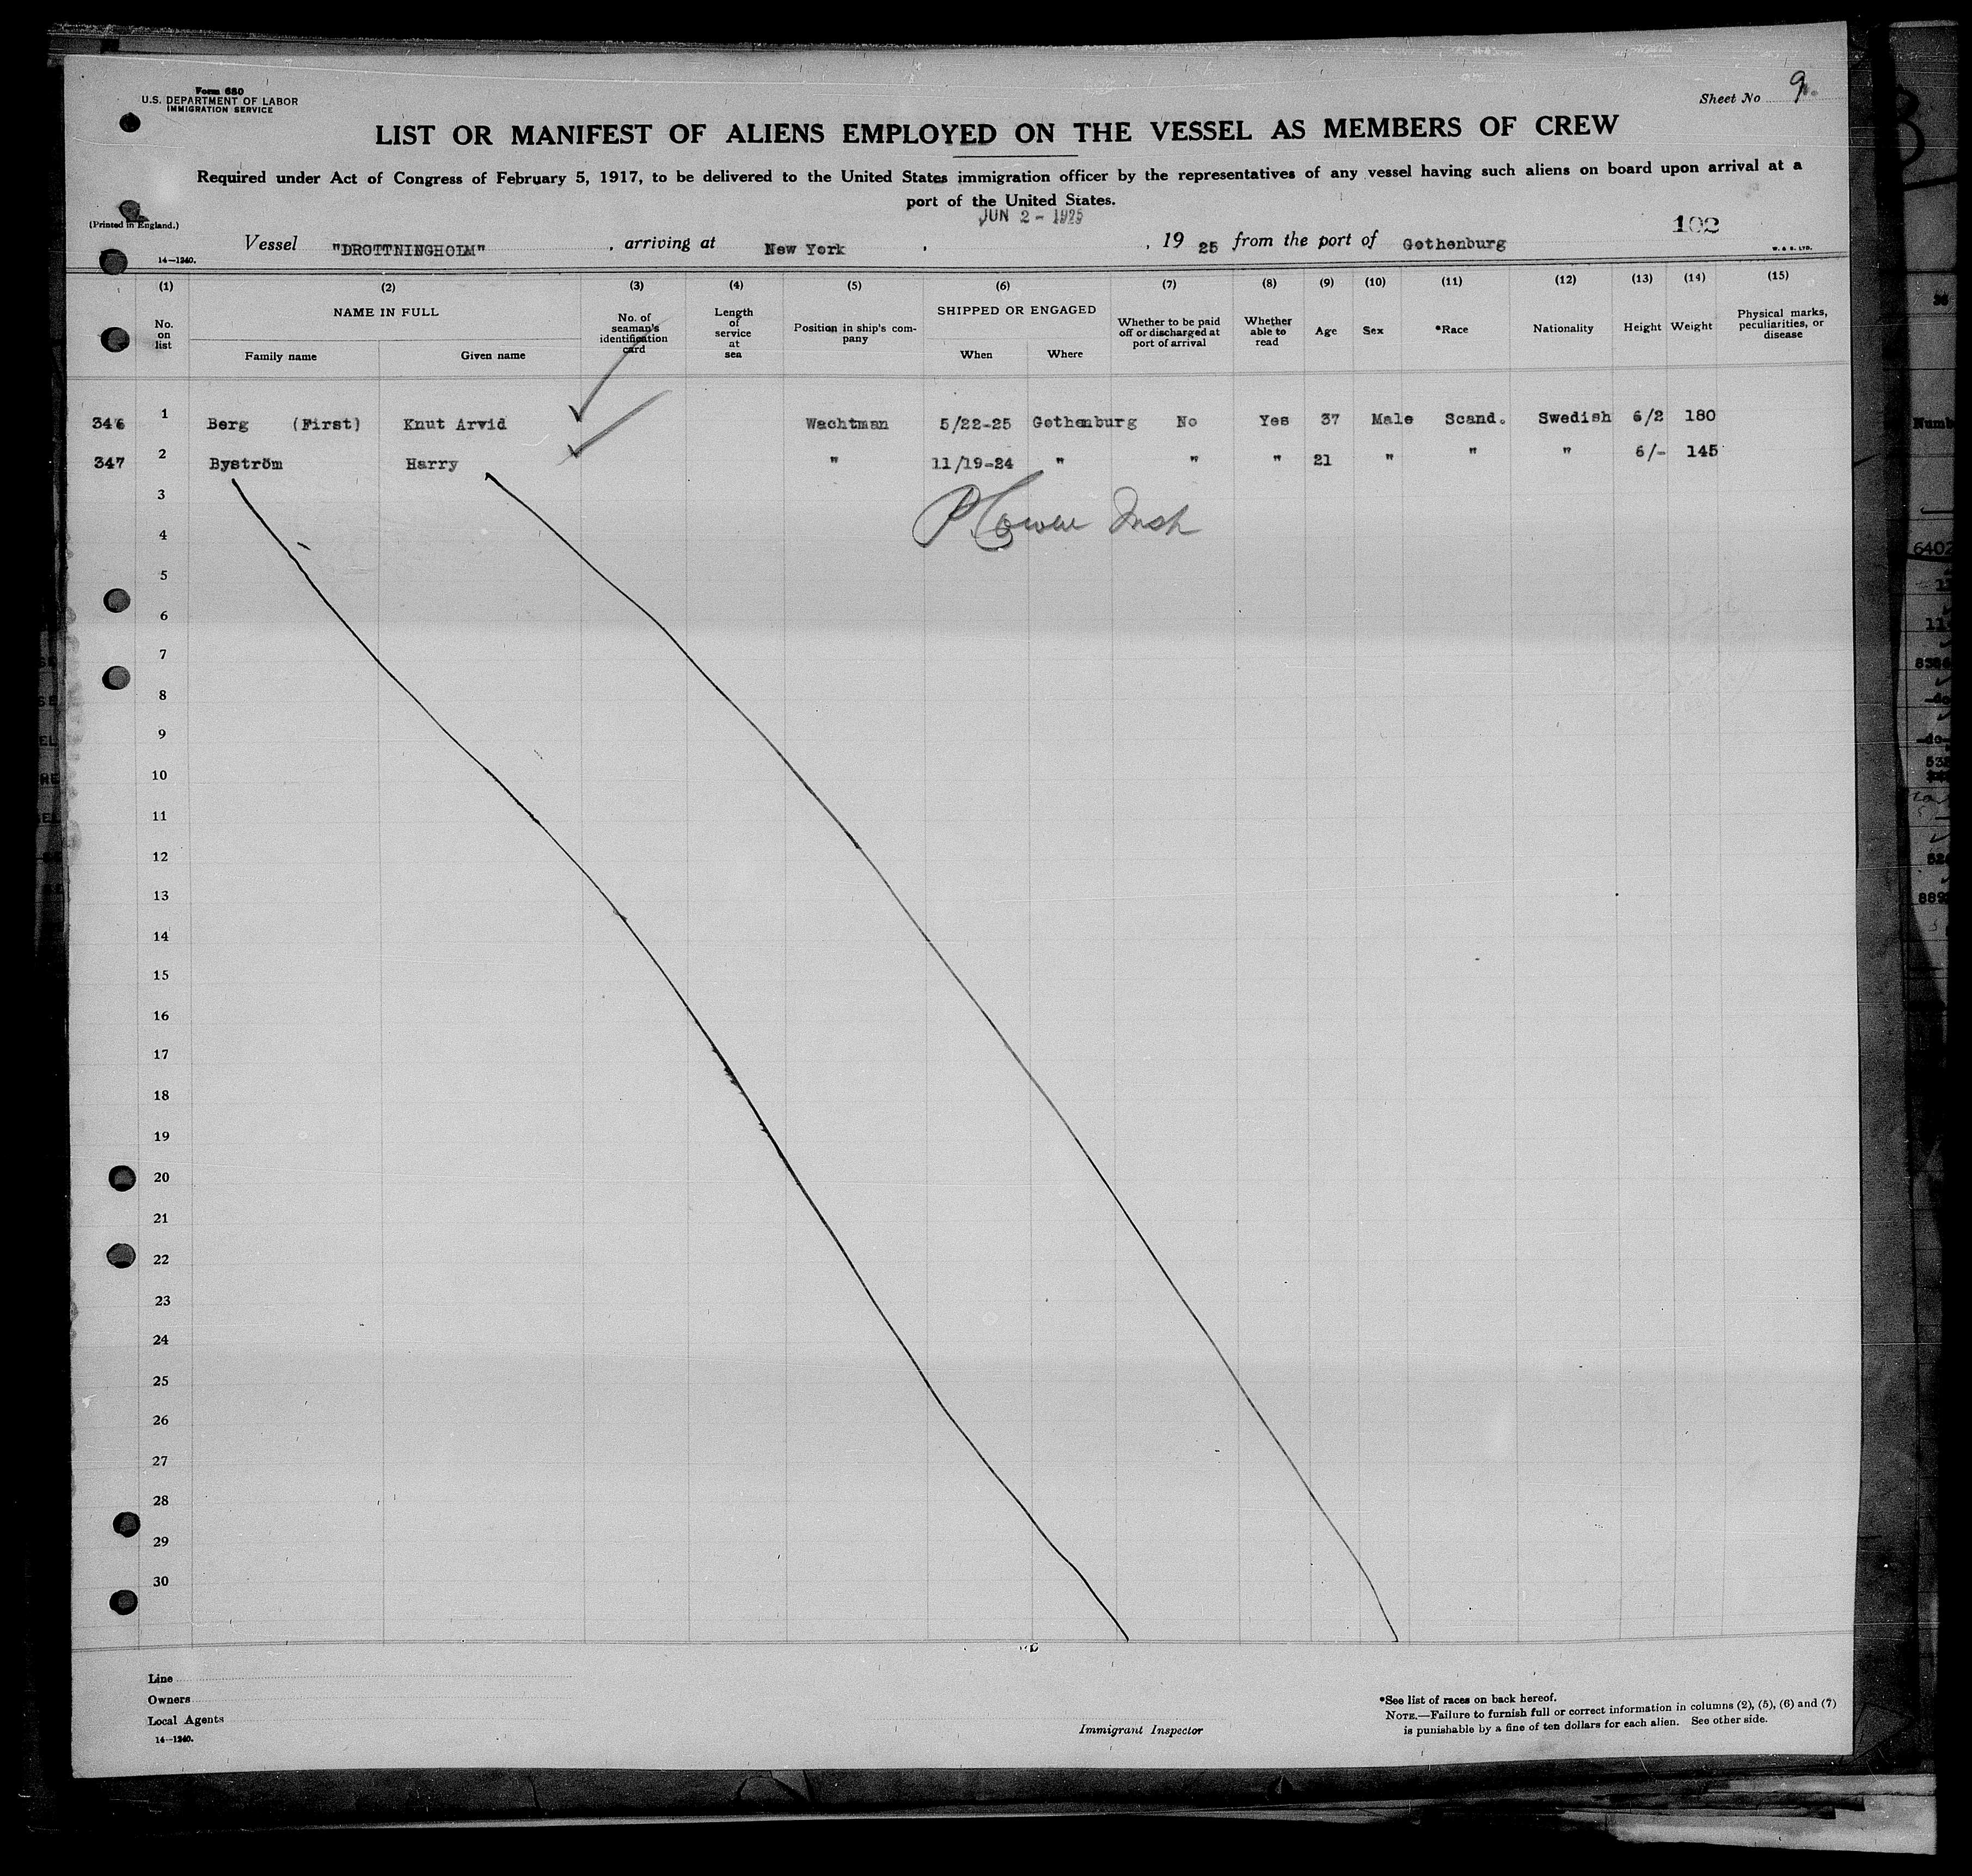 Form 680
U.S. DEPARTMENT OF LABOR
IMMIGRATION SERVICE
Sheet No 9
LIST OR MANIFEST OF ALIENS EMPLOYED ON THE VESSEL AS MEMBERS OF CREW
Required under Act of Congress of February 5, 1917, to be delivered to the United States immigration officer by the representatives of any vessel having such aliens on board upon arrival at a
port of the United States.
JUN 2 - 1925
(Printed in England.)
102
Vessel "DROTTNINGHOLM", arriving at New York, 1925 from the port of Gothenburg
14—1240.
W. & S. LTD.
(1) (2) (3) (4) (5) (6) (7) (8) (9) (10) (11) (12) (13) (14) (15)
No. on list
NAME IN FULL
Family name Given name
No. of seaman's identification card
Length of service at sea
Position in ship's com-pany
SHIPPED OR ENGAGED
When Where
Whether to be paid off or discharged at port of arrival
Whether able to read
Age
Sex
*Race
Nationality
Height
Weight
Physical marks, peculiarities, or disease
346 1 Berg (First) Knut Arvid Wachtman 5/22-25 Gothenburg No Yes 37 Male Scand. Swedish 6/2 180
347 2 Byström Harry " 11/19-24 " " " 21 " " " 6/- 145
3
4
5
6
7
8
9
10
11
12
13
14
15
16
17
18
19
20
21
22
23
24
25
26
27
28
29
30
Line
Owners
Local Agents
14—1240.
Immigrant Inspector
*See list of races on back hereof.
NOTE.—Failure to furnish full or correct information in columns (2), (5), (6) and (7)
is punishable by a fine of ten dollars for each alien. See other side.